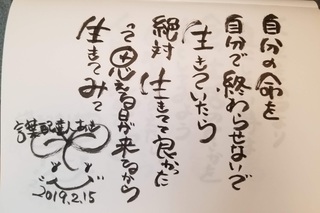 自分の命を
自分で終わらせないで
生きていたら
絶対生きてて良かった
って思える日が来るから
生きてみて
言葉配達人あき
2019.2.15